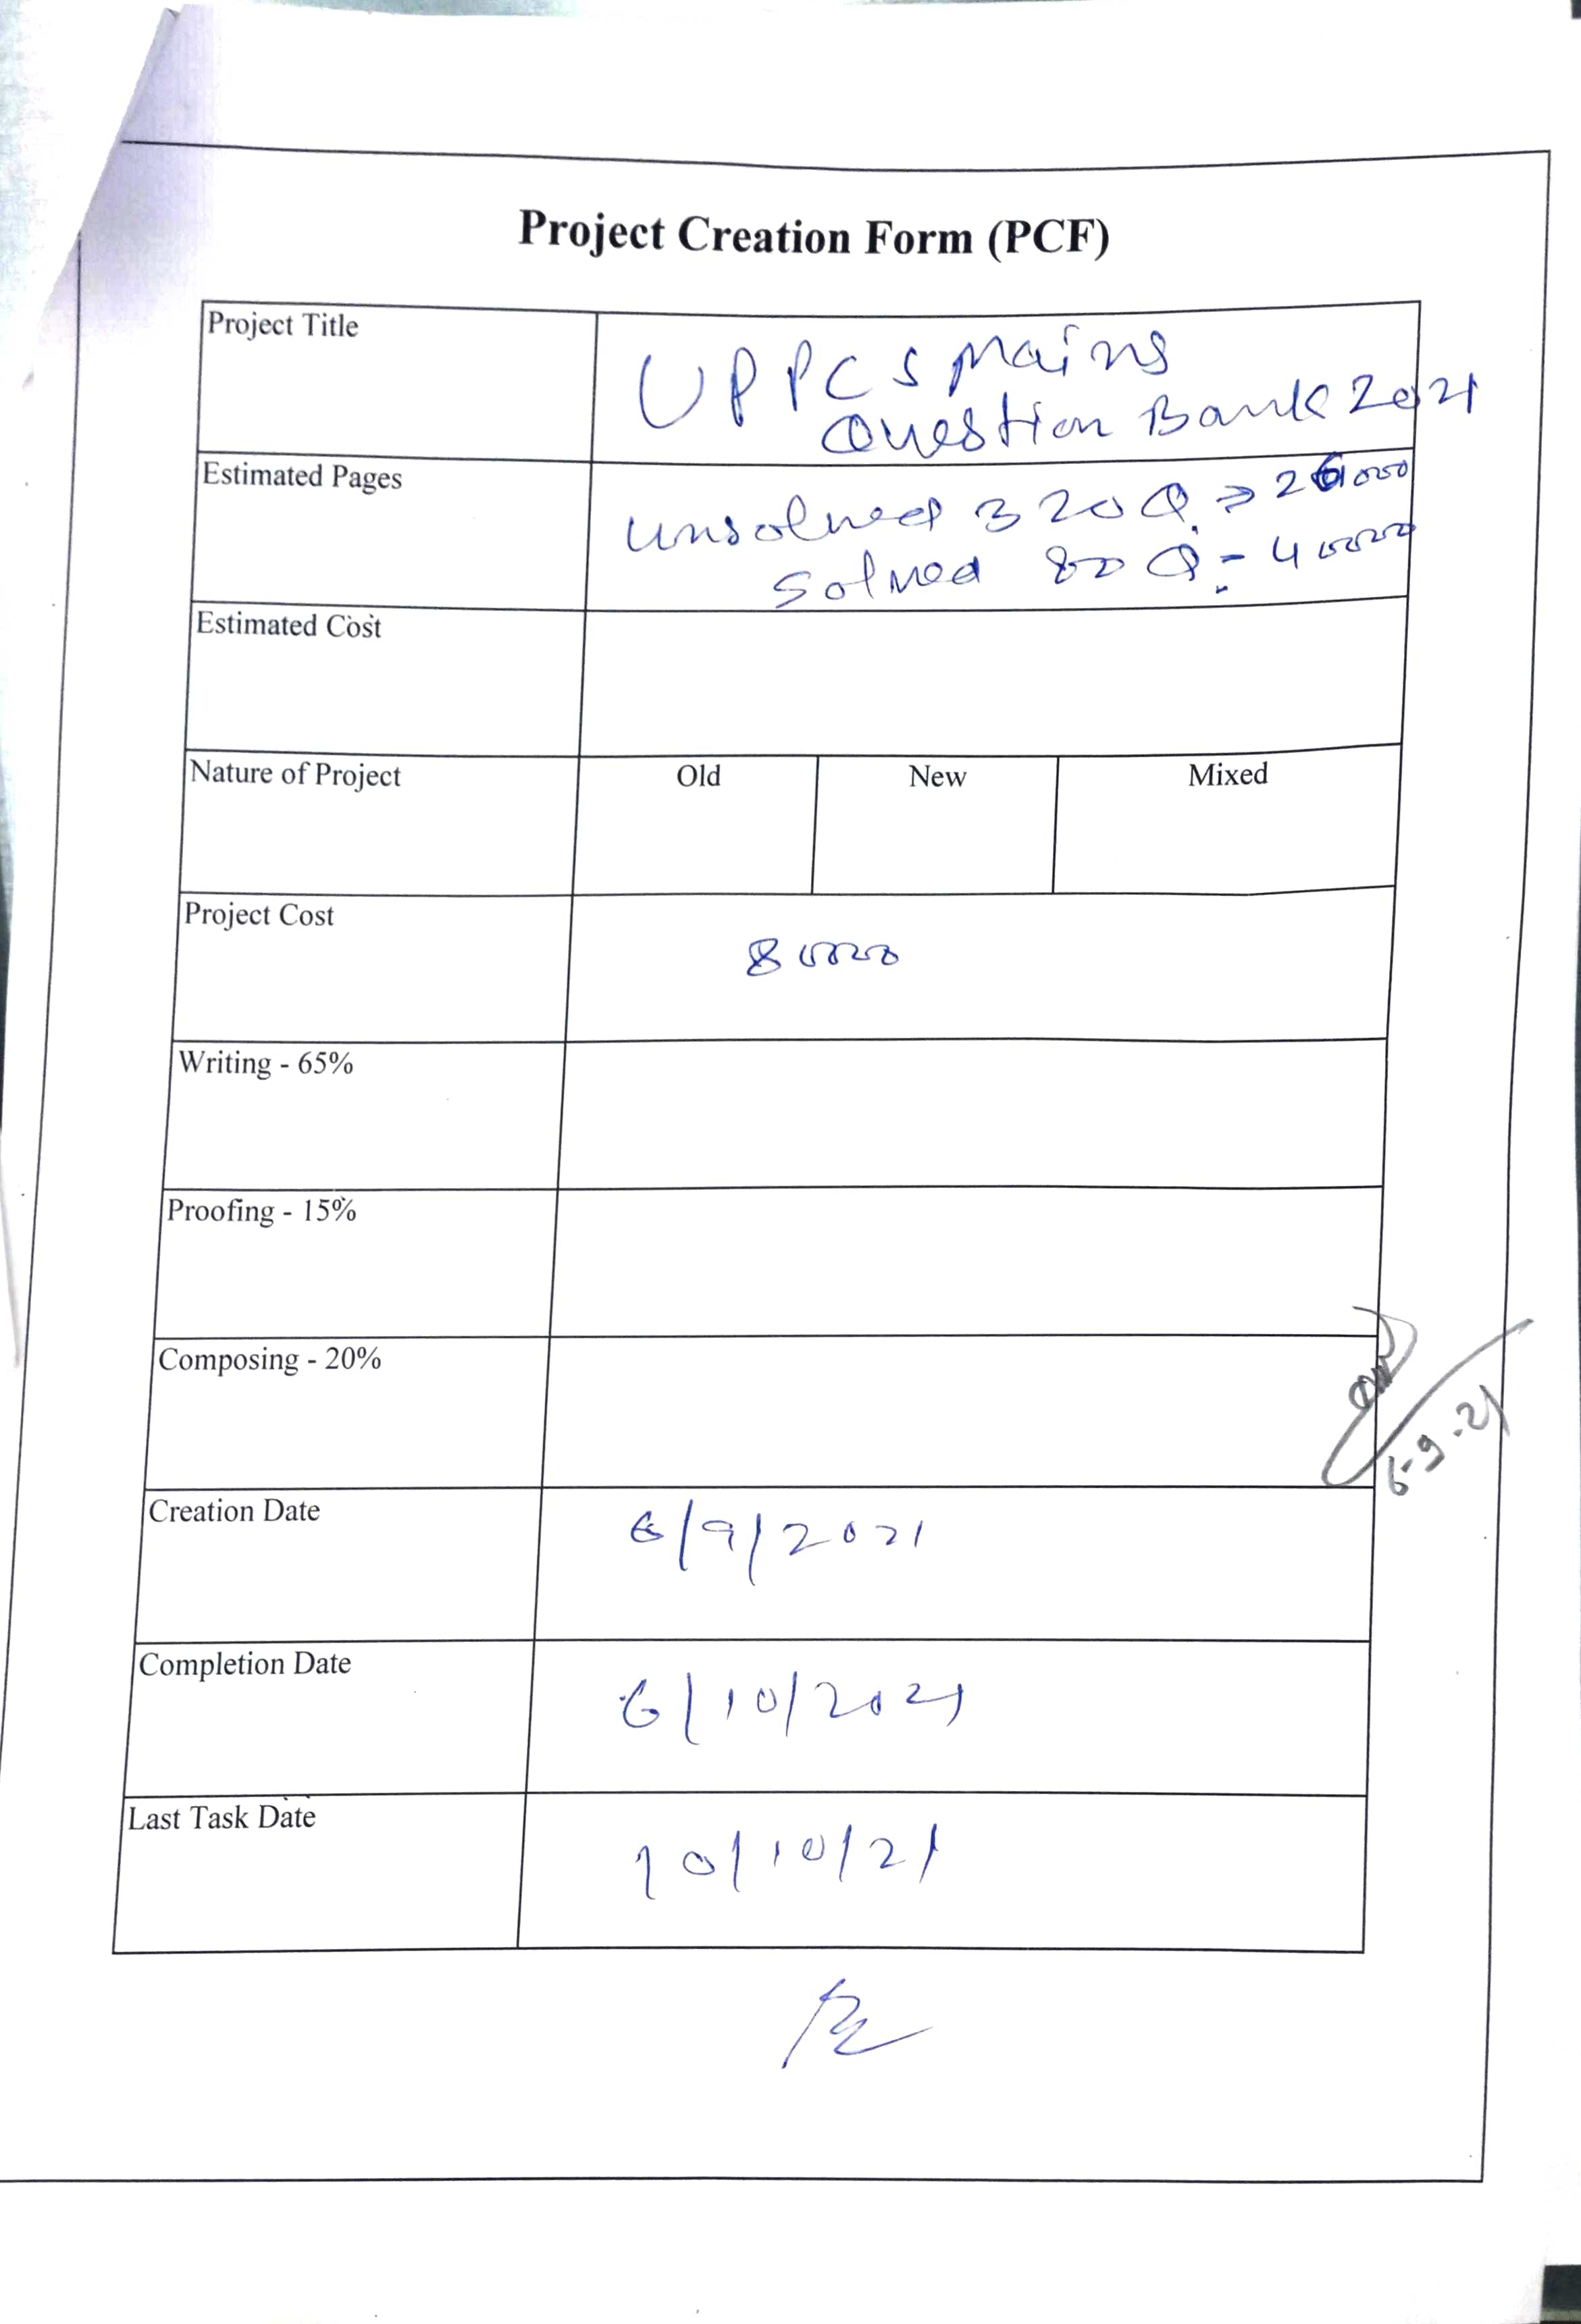 Project Creation Form (PCF)
Project Title
UPPCS Mains
Question Bank 2021
Estimated Pages
unsolved 320 Q. ⇒
solved 80 Q. - 40000
Estimated Cost
Nature of Project
Old
New
Mixed
Project Cost
80000
Writing - 65%
Proofing - 15%
Composing - 20%
6-9-21
Creation Date
6/9/2021
Completion Date
6/10/2021
Last Task Date
10/10/21